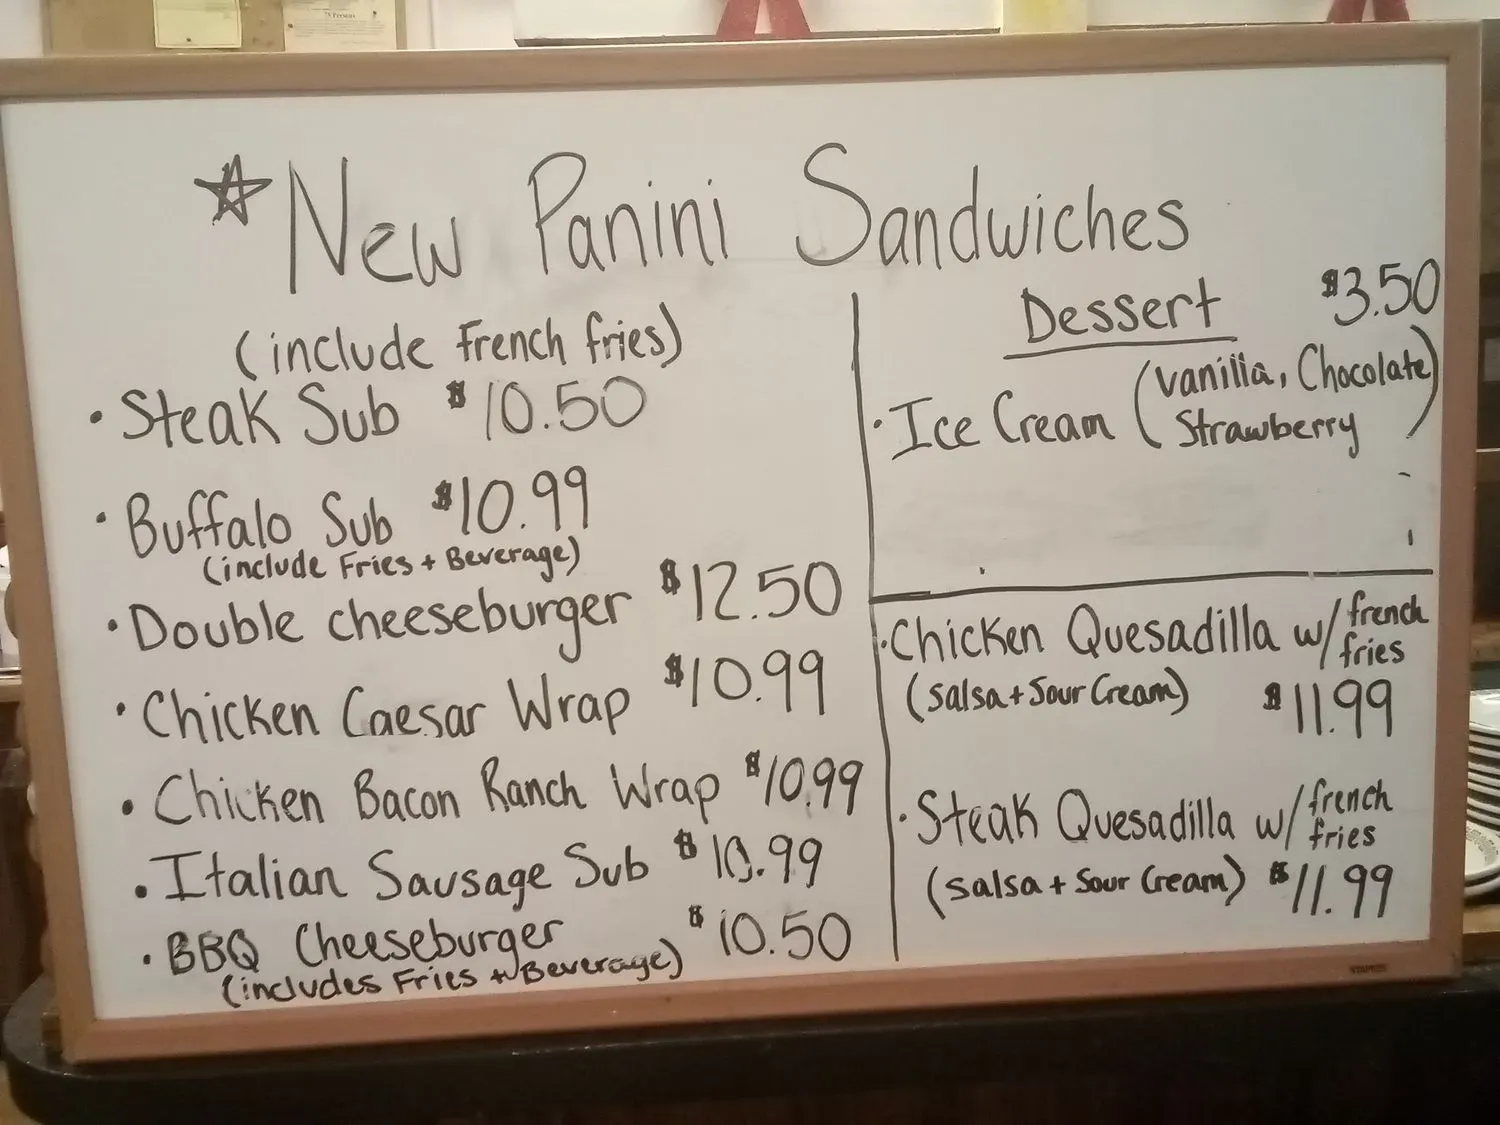 *New Panini Sandwiches
(include french fries)
• Steak Sub $10.50
• Buffalo Sub $10.99
(include Fries + Beverage)
• Double cheeseburger $12.50
• Chicken Caesar Wrap $10.99
• Chicken Bacon Ranch Wrap $10.99
• Italian Sausage Sub $10.99
• BBQ Cheeseburger $10.50
(includes Fries + Beverage)
Dessert $3.50
• Ice Cream (vanilla, Chocolate
Strawberry)
• Chicken Quesadilla w/ french
fries
(salsa + Sour Cream) $11.99
• Steak Quesadilla w/ french
fries
(salsa + Sour Cream) $11.99